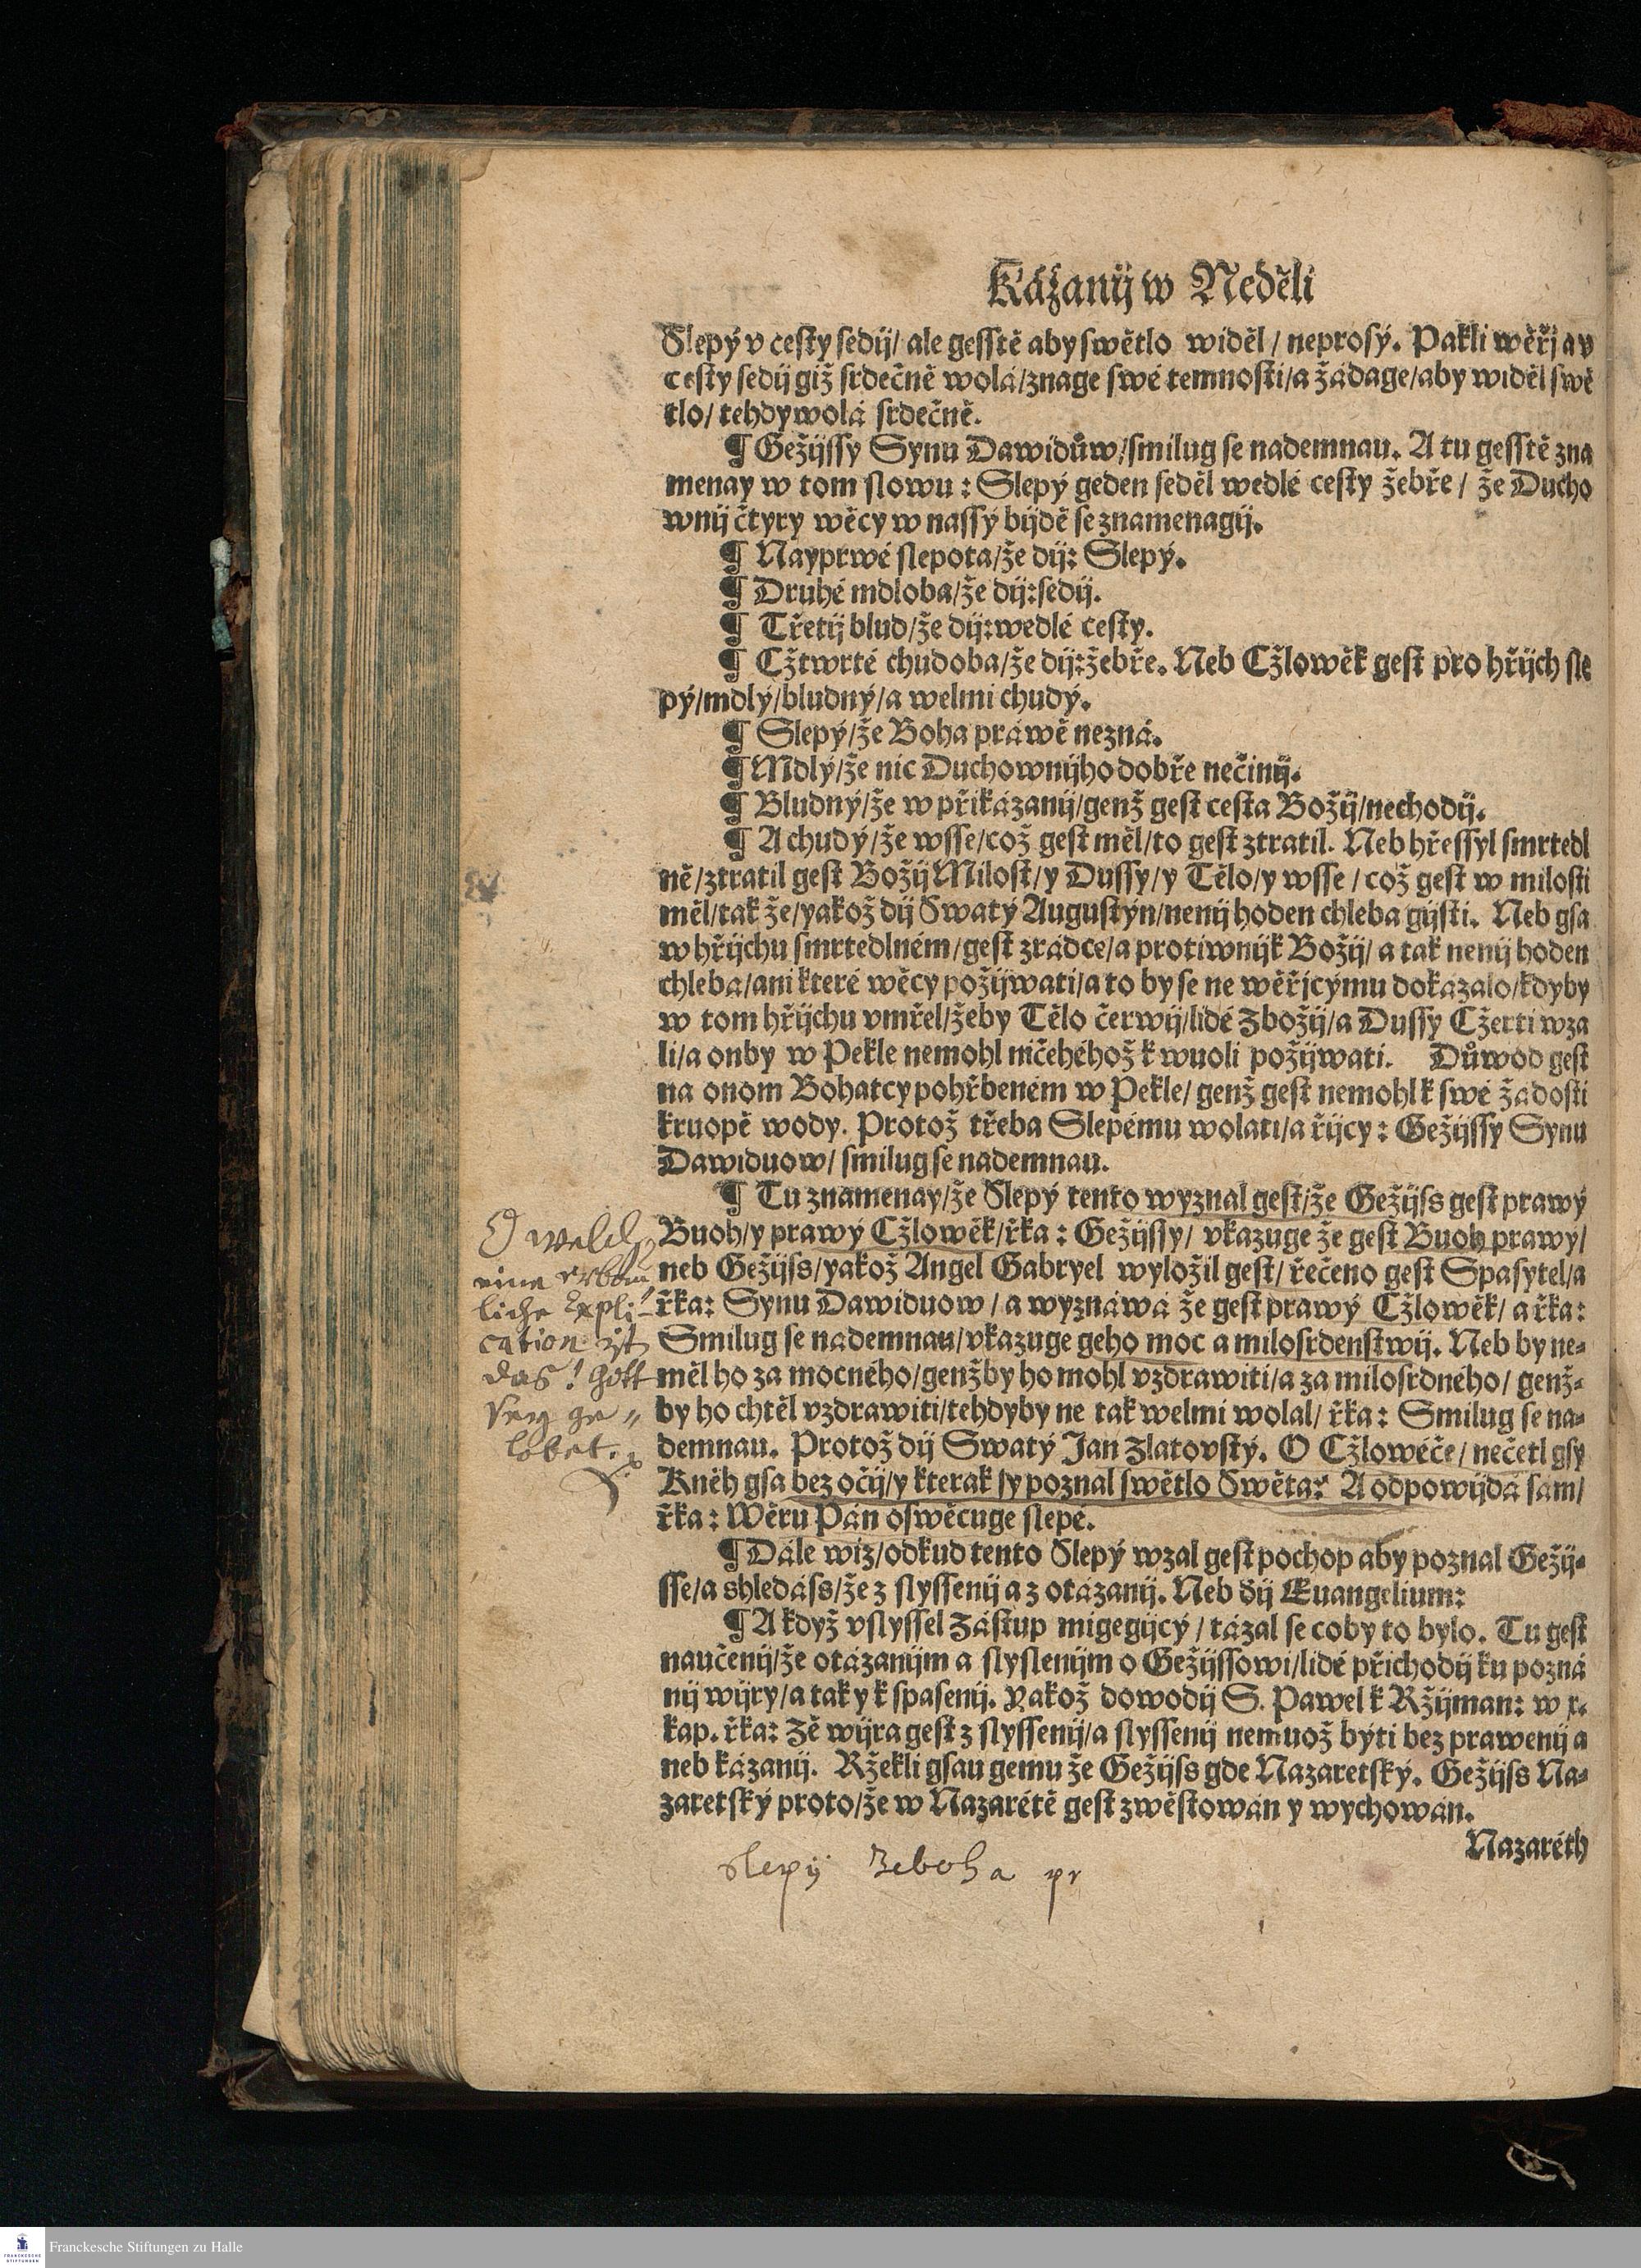 Kázanij w Neděli
Slepý v cesty sedij/ ale gesstě aby swětlo widěl / neprosý. Pakli wěřj a v
cesty sedij giž srdečně wolá/znage swé temnosti/a žádage/aby widěl swě
tlo/ tehdy wolá srdečně.
¶ Gežijssy Synu Dawidůw/smilug se nademnau. A tu gesstě zna
menay w tom slowu : Slepý geden seděl wedlé cesty žebře / že Ducho
wnij čtyry wěcy w nassý bijdě se znamenagij.
¶ Nayprwé slepota/že dij: Slepý.
¶ Druhé mdloba/že dij:sedij.
¶ Třetij blud/že dij:wedlé cesty.
¶ Cžtwrté chudoba/že dij:žebře. Neb Cžlowěk gest pro hřijch sle
pý/mdlý/bludný/a welmi chudý.
¶ Slepý/že Boha práwě nezná.
¶ Mdlý/že nic Duchownijho dobře nečinij.
¶ Bludný/že w přikázanij/genž gest cesta Božij/nechodij.
¶ A chudý/že wsse/což gest měl/to gest ztratil. Neb hřessyl smrtedl
ně/ztratil gest Božij Milost/y Dussy/y Tělo/y wsse / což gest w milosti
měl/tak že/yakož dij Swatý Augustýn/nenij hoden chleba gijsti. Neb gsa
w hřijchu smrtedlném/gest zrádce/a protiwnijk Božij/ a tak nenij hoden
chleba/ani které wěcy požijwati/a to by se ne wěřjcýmu dokázalo/kdyby
w tom hřijchu vmřel/žeby Tělo čerwij/lidé Zbožij/a Dussy Cžerti wza
li/a onby w Pekle nemohl ničehéhož k wuoli požijwati. Důwod gest
na onom Bohatcy pohřbeném w Pekle/ genž gest nemohl k swé žádosti
kruopě wody. Protož třeba Slepému wolati/a řijcy : Gežijssy Synu
Dawiduow/ smilug se nademnau.
¶ Tu znamenay/že Slepý tento wyznal gest/že Gežijss gest prawý
Buoh/y prawý Cžlowěk/řka : Gežijssy/ vkazuge že gest Buoh prawý/
neb Gežijss/yakož Angel Gabryel wyložil gest/ řečeno gest Spasytel/a
řka: Synu Dawiduow / a wyznáwá že gest prawý Cžlowěk/ a řka:
Smilug se nademnau/vkazuge geho moc a milosrdenstwij. Neb by ne-
měl ho za mocného/genžby ho mohl vzdrawiti/a za milosrdného/ genž-
by ho chtěl vzdrawiti/tehdyby ne tak welmi wolal/ řka : Smilug se na-
demnau. Protož dij Swatý Jan Zlatovstý. O Cžlowěče/ nečetl gsy
Kněh gsa bez očij/y kterak sy poznal swětlo Swěta? A odpowijdá sám/
řka : Wěru Pán oswěcuge slepé.
¶ Dále wiz/odkud tento Slepý wzal gest pochop aby poznal Gežij-
sse/a shledáss/že z slyssenij a z otázanij. Neb dij Euangelium:
¶ A když vslyssel Zástup migegijcý / tázal se coby to bylo. Tu gest
naučenij/že otázanijm a slyssenijm o Gežijssowi/lidé přichodij ku pozná
nij wijry/a tak y k spasenij. Yakož dowodij S. Pawel k Ržijman: w x.
kap. řka: Zě wijra gest z slyssenij/a slyssenij nemuož býti bez prawenij a
neb kázanij. Ržekli gsau gemu že Gežijss gde Nazaretský. Gežijss Na-
zaretský proto/že w Nazarétě gest zwěstowán y wychowán.
Nazaréth
O welch
eine erbau
liche Expli-
cation ist
das! Gott
sey ge-
lobet.
slepij Zeboha pr
Franckesche Stiftungen zu Halle